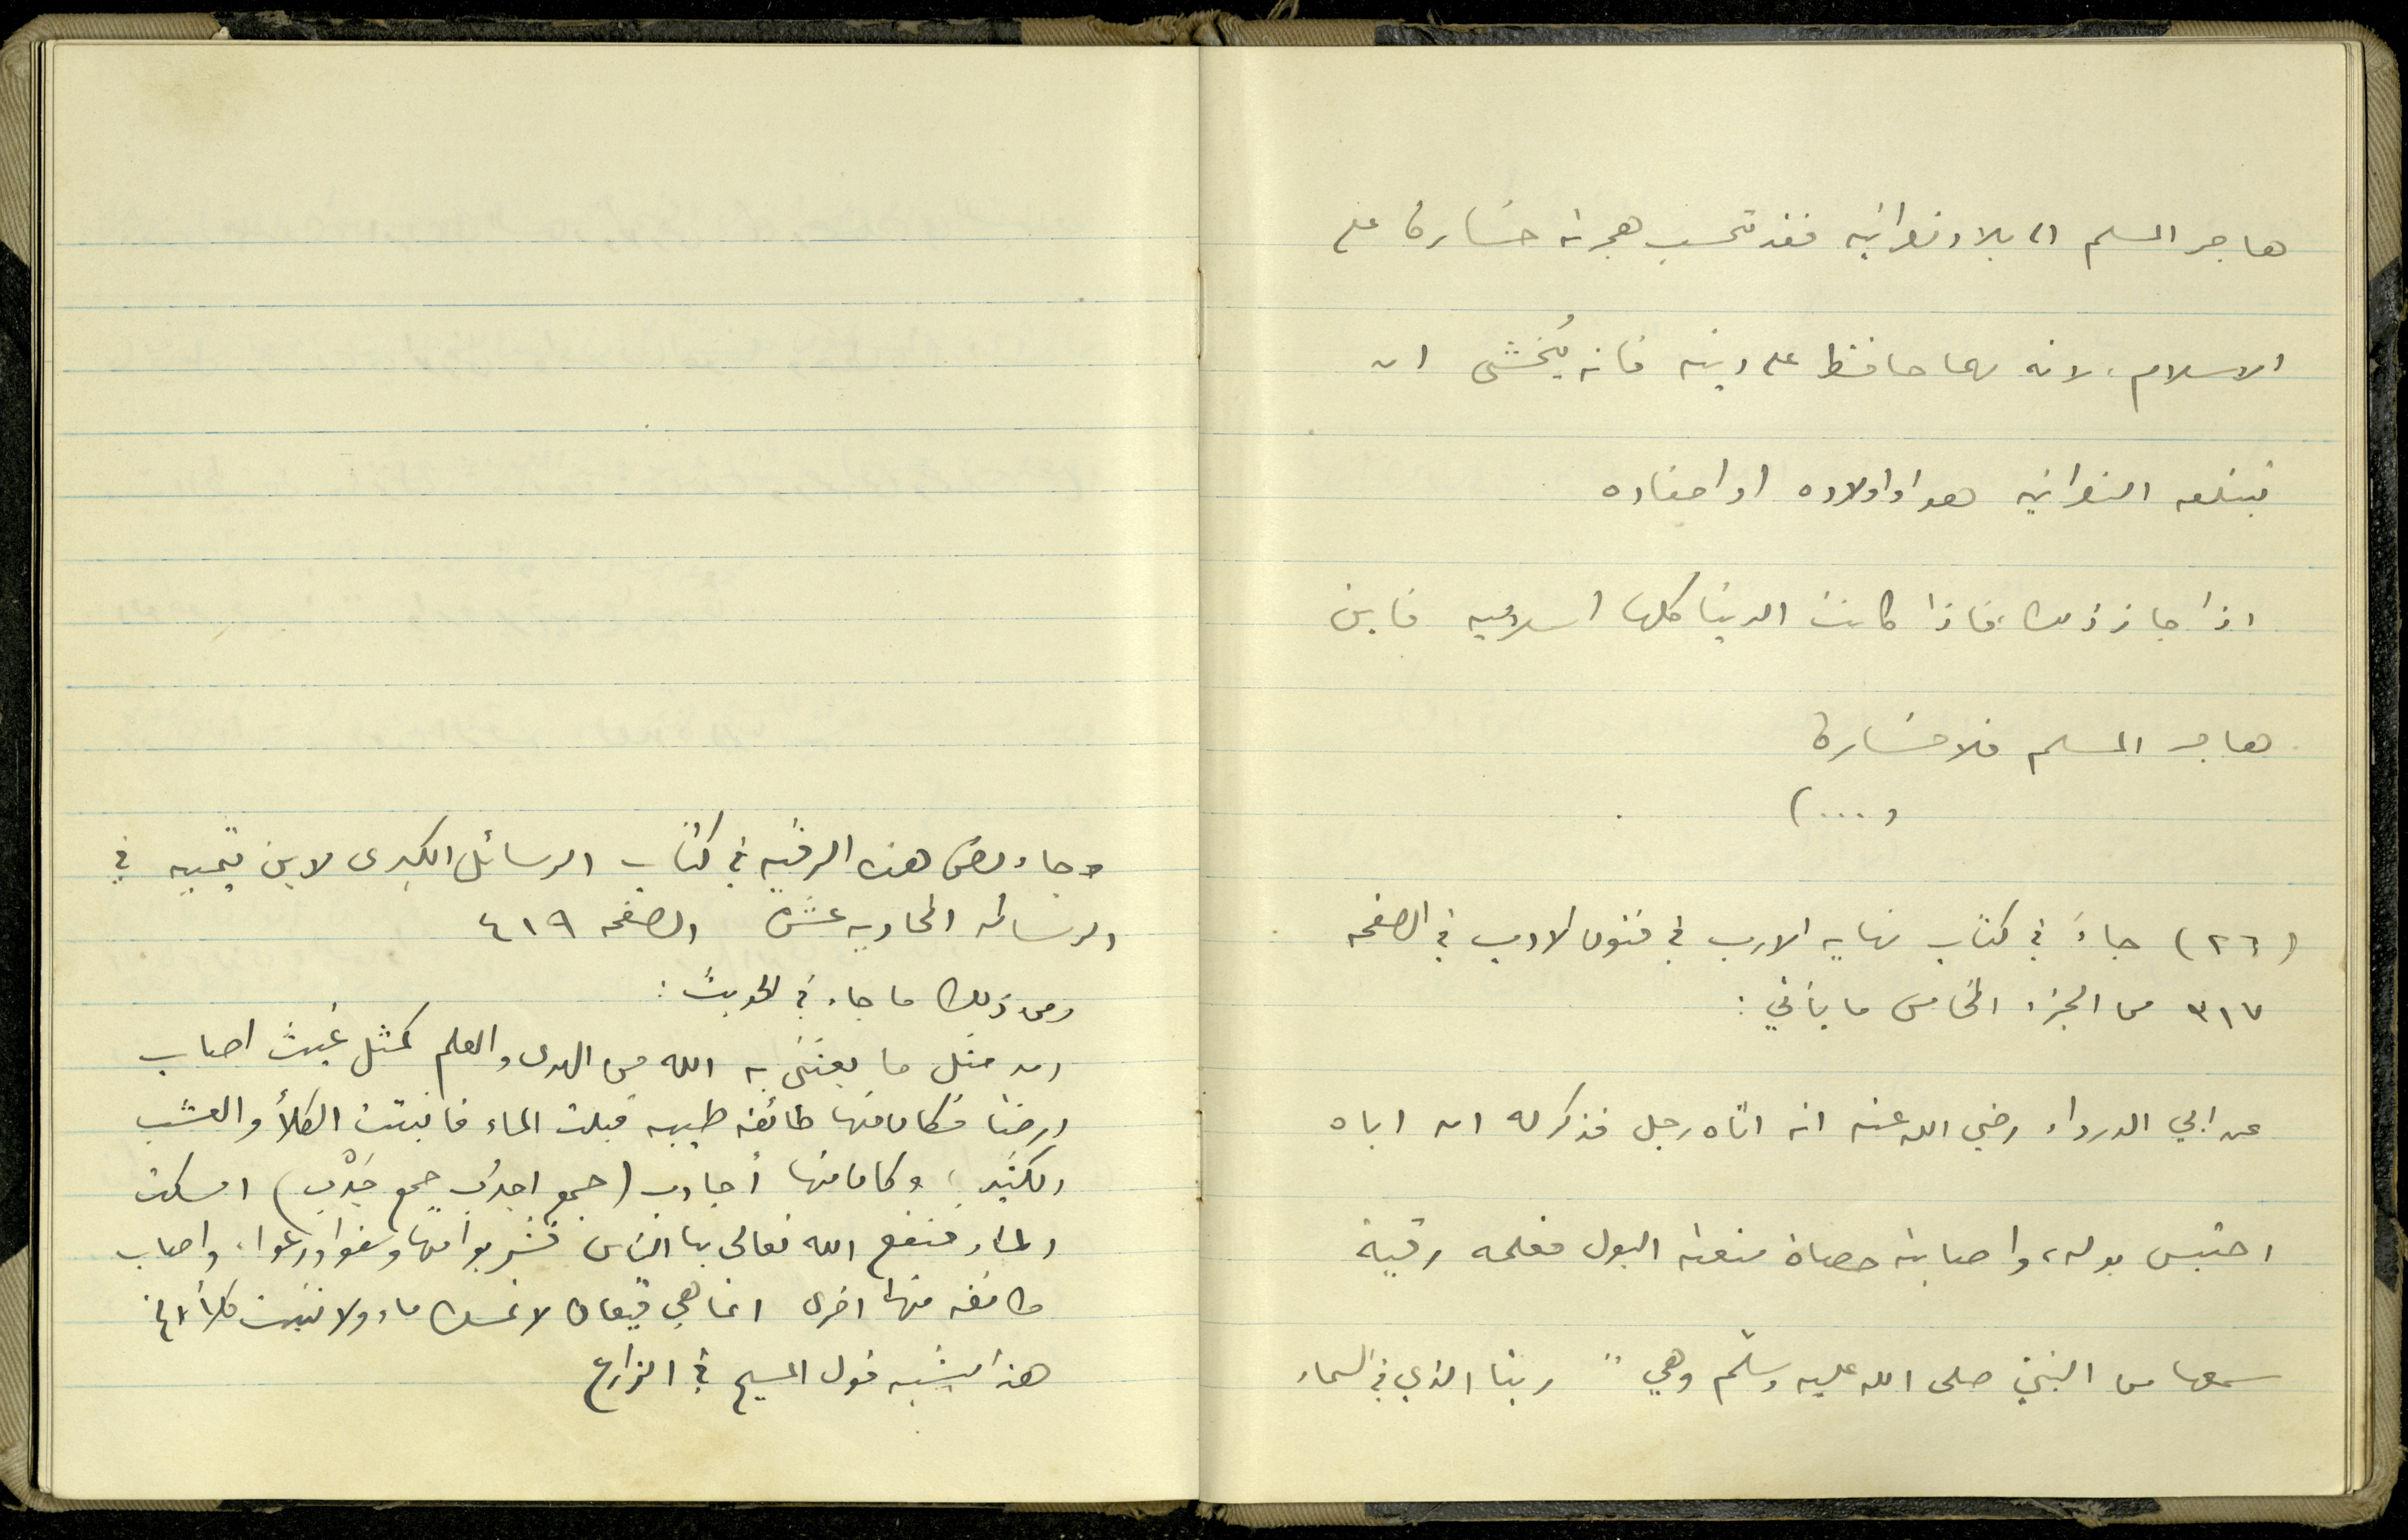 هاجر المسلم الى بلاد نصرانيه فقد تحسب هجرته خسارة على
الاسلام، لانه مهما حافظ على دينه فانه يُخشى ان
تبتلعه النصرانيه هو او اولاده او احفاده
اذا جاز ذلك، فاذا كانت الدنيا كلها اسلاميه فاين
هاجر المسلم فلا خسارة
(....
(٢٦) جاءَ في كتاب نهايه الارب في فنون الادب في الصفحه
٣١٧ من الجزء الخامس ما يأتي:
عن ابي الدرداء رضي الله عنه انه اتاه رجل فذكر له ان اباه
احتبس بوله، واصابته حصاة منعته البول فعلمه رقية
سمعها من النبيّ صلى الله عليه وسلّم وهي " ربنا الذي في السماء
وجاء بعض هذه الرقيه في كتاب الرسائل الكبرى لابن تيميه في
الرساله الحاديه عشرة الصفحه ٤١٩
ومن ذلك ما جاء في الحديث:
ان مثل ما بعثني به الله من الهدى والعلم كمثل غيث اصاب
ارضا فكان منها طائفه طيبه قبلت الماء فانبتت الكلأ والعشب
الكثير، وكان منها أجادب (جمع اجدُب جمع جَدْب) امسكت
الماء فنفع الله تعالى بها الناس فشربوا منها وسقوا ورعوا، واصاب
طائفه منها اخرى انما هي قيعان لا تمسك ماء ولا تنبت كلأ الخ
هذا يشبه قول المسيح في الزارع